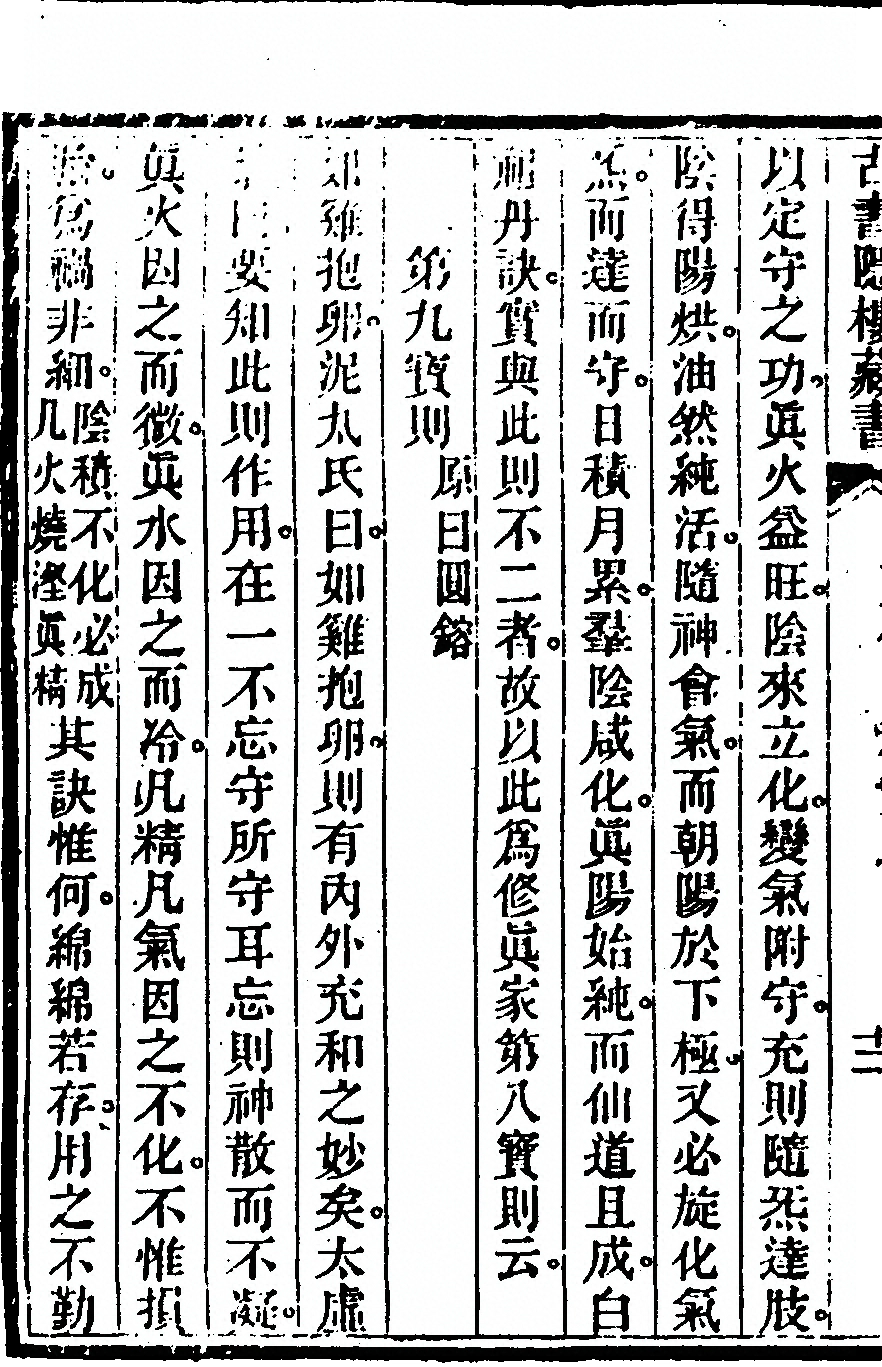 古書隱樓藏書
十二
以定守之功。眞火益旺。陰來立化。變氣附守。充則隨炁達肢。
陰得陽烘。油然純活。隨神會氣。而朝陽於下極。又必旋化氣
炁。而達而守。日積月累。羣陰咸化。眞陽始純。而仙道且成。白
丹訣。實與此則不二者。故以此爲修眞家第八寶則云。
第九寶則 原曰圓鎔
雞抱卵。泥丸氏曰。如雞抱卵。則有內外充和之妙矣。太虛
曰。要知此則作用。在一不忘守所守耳。忘則神散而不凝。
眞火因之而微。眞水因之而冷。凡精凡氣因之不化。不惟損
陰。爲禍非細。陰積不化必成几火燒溼眞精其訣惟何。綿綿若存。用之不勤